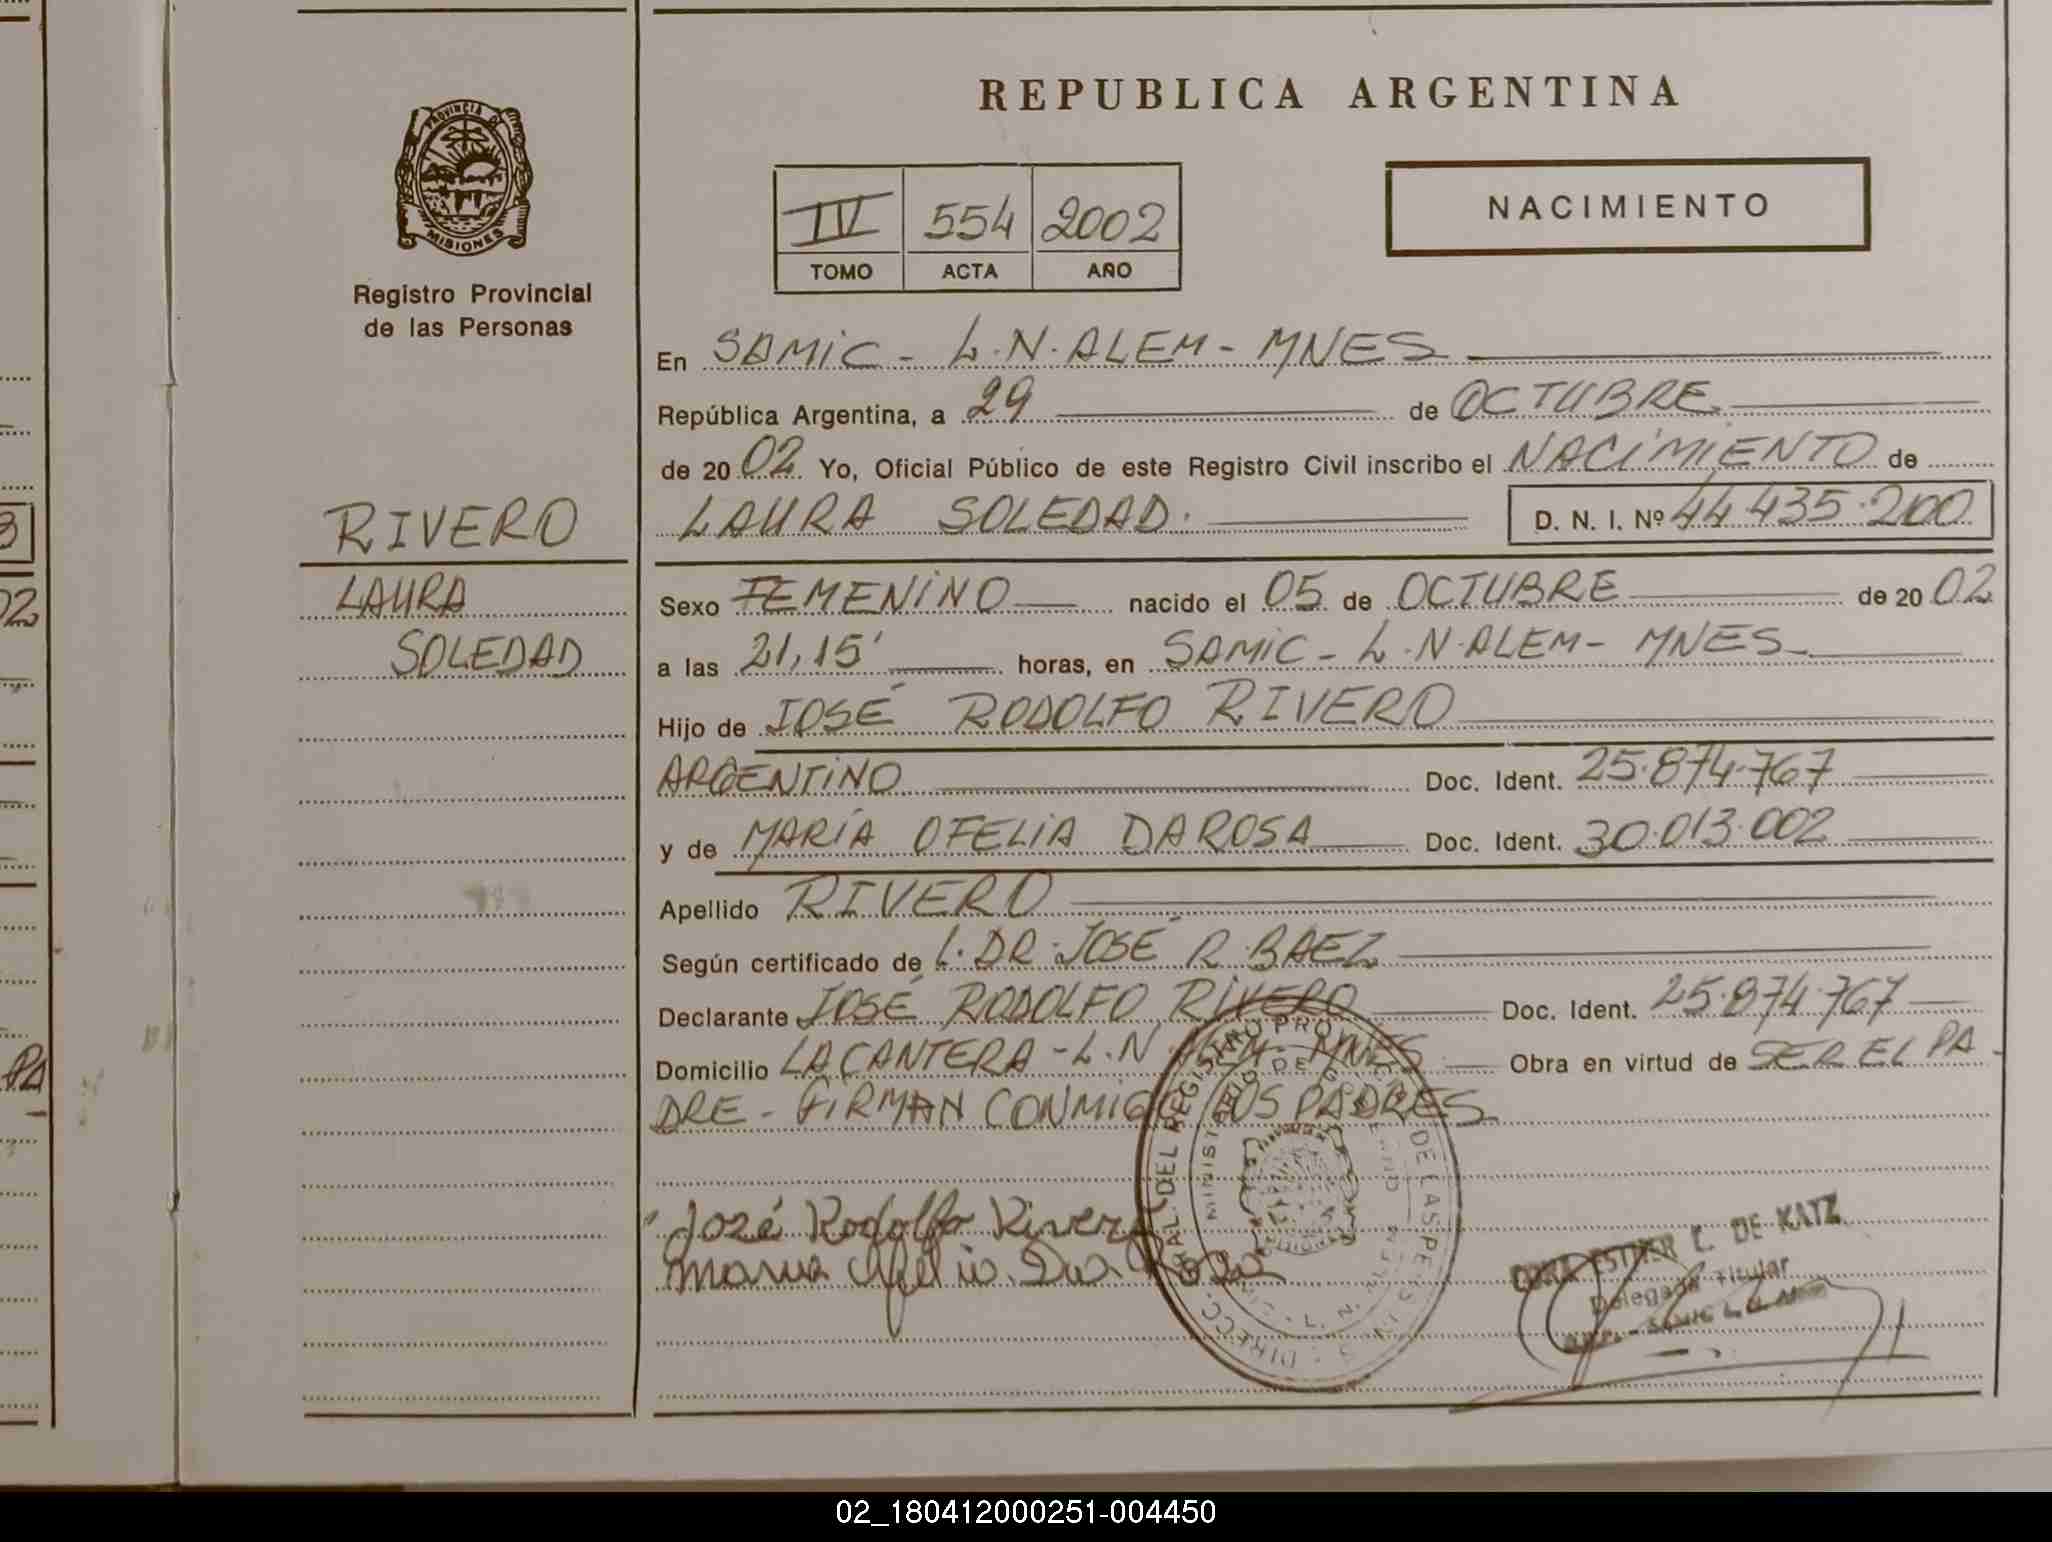 REPUBLICA ARGENTINA
PROVINCIA DE
MISIONES
Registro Provincial
de las Personas
IV 554 2002
TOMO ACTA AÑO
NACIMIENTO
En SAMIC - L.N. ALEM - MNES
República Argentina, a 29 de OCTUBRE
de 20 02 Yo, Oficial Público de este Registro Civil inscribo el NACIMIENTO de
LAURA SOLEDAD. D. N. I. Nº 44.435.200
RIVERO
LAURA
SOLEDAD
Sexo FEMENINO nacido el 05 de OCTUBRE de 20 02
a las 21,15' horas, en SAMIC - L.N. ALEM - MNES
Hijo de JOSÉ RODOLFO RIVERO
ARGENTINO Doc. Ident. 25.874.767
y de MARÍA OFELIA DAROSA Doc. Ident. 30.013.002
Apellido RIVERO
Según certificado de L. DR. JOSÉ R. BAEZ
Declarante JOSÉ RODOLFO RIVERO Doc. Ident. 25.874.767
Domicilio LA CANTERA - L.N. ALEM - MNES Obra en virtud de SER EL PA-
DRE - FIRMAN CONMIGO LOS PADRES
José Rodolfo Rivero
Maria Ofelia Da Rosa
ESTHER L. DE KATZ
Delegada Titular
SAMIC L. N. ALEM
02_180412000251-004450